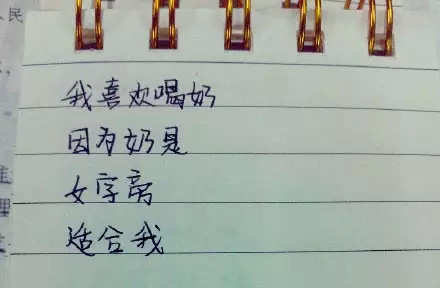 我喜欢喝奶
因为奶是
女字旁
适合我